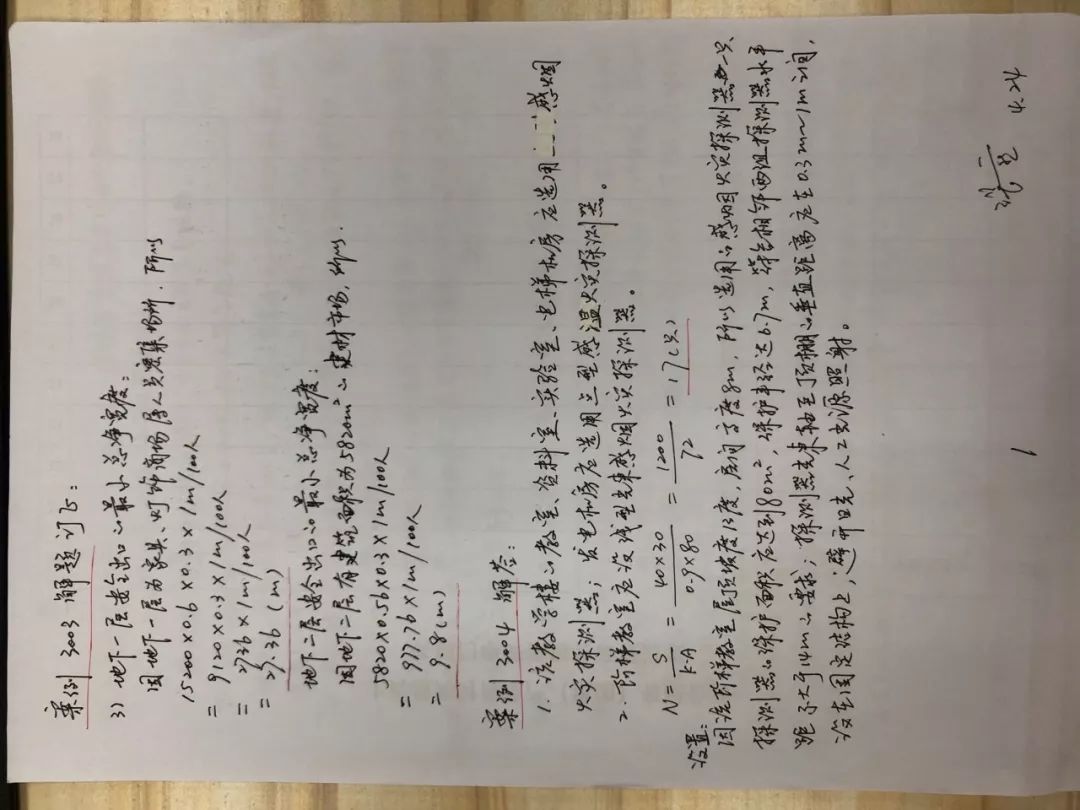 案例 3003 解题订正:
3) 地下一层安全出口的最小总净宽度:
因地下一层为家具、灯饰商场属人员密集场所. 所以
15200×0.6×0.3×1m/100人
= 9120×0.3×1m/100人
= 2736×1m/100人
= 27.36(m)
地下二层安全出口的最小总净宽度:
因地下二层有建筑面积为5820m²的建材市场, 所以.
5820×0.56×0.3×1m/100人
= 977.76×1m/100人
= 9.8(m)
案例 3004 解答:
1. 该教学楼的教室、资料室、实验室、电梯机房应选用 感烟
火灾探测器; 发电机房应选用点型感温火灾探测器。
2. 阶梯教室应设线型光束感烟火灾探测器。
N = S/K·A = 40×30/0.9×80 = 1200/72 = 17(只)
设置:
因该阶梯教室屋顶坡度13度, 房间高度8m, 所以选用的感烟火灾探测器一只
探测器的保护面积应达到80m², 保护半径达6.7m, 符合相邻两组探测器水平
距不大于14m的要求; 探测器光束轴至顶棚的垂直距离应在0.3m~1m之间,
设在固定结构上, 避开日光、人工光源照射。
4.24
1